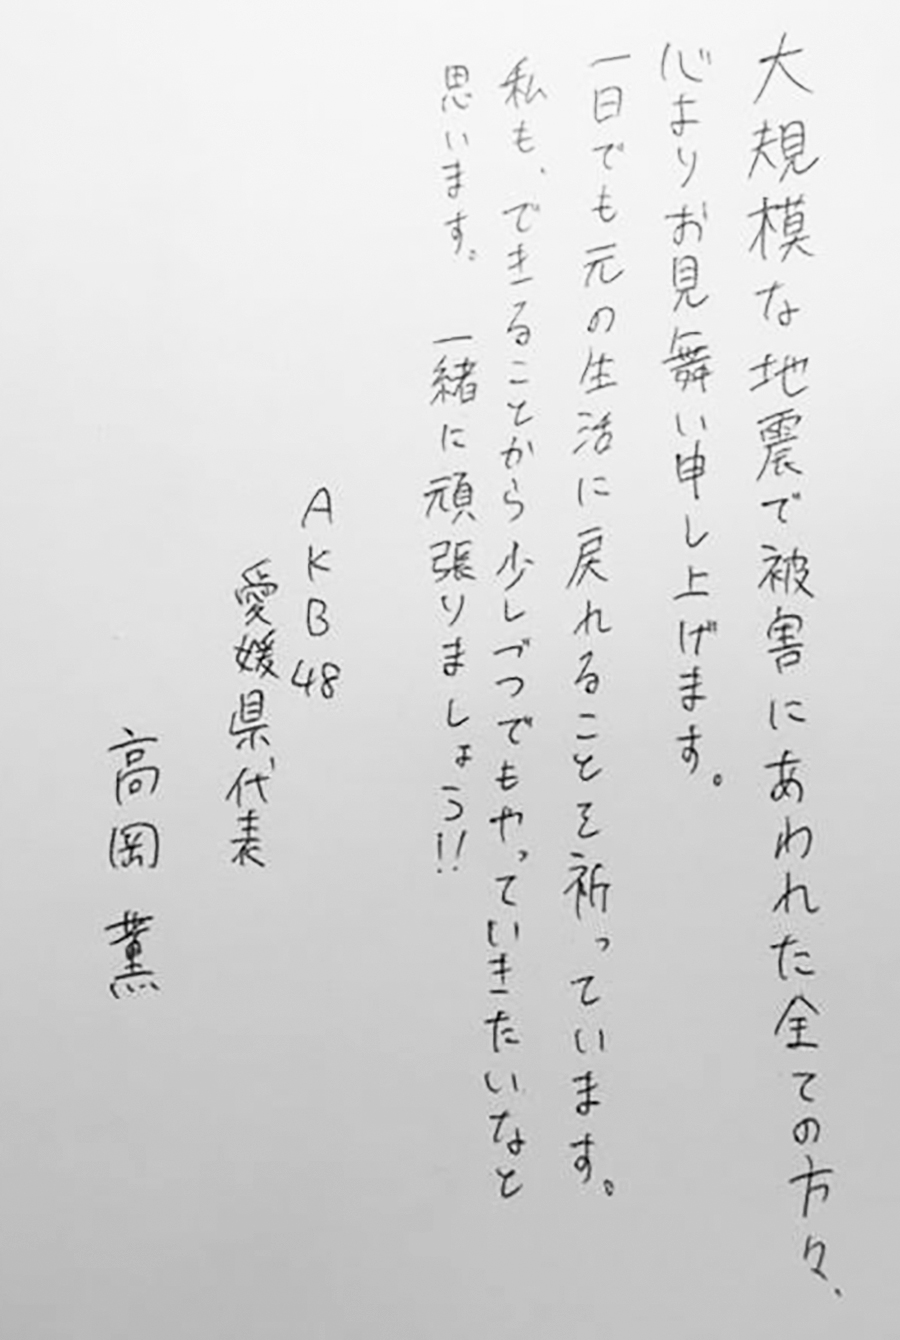 大規模な地震で被害にあわれた全ての方々、
心よりお見舞い申し上げます。
一日でも元の生活に戻れることを祈っています。
私も、できることから少しづつでもやっていきたいなと
思います。 一緒に頑張りましょう!!
AKB48
愛媛県代表
高岡薫